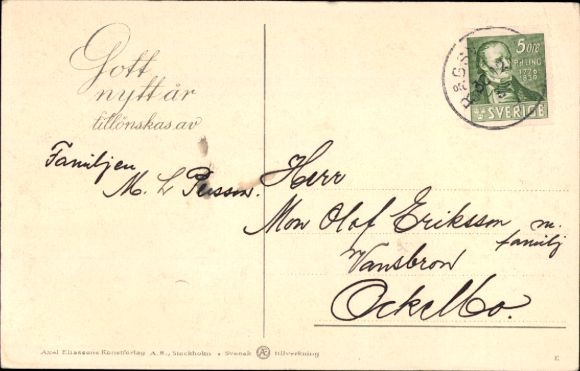 Gott
nytt år
tillönskas av
Familjen
M. L. Persson.
5 ÖRE
P.H.LING
1776
1839
SVERIGE
Herr
Mon Olof Eriksson m.
familj
Vansbron
Ockelbo.
Axel Eliassons Konstförlag A. B., Stockholm • Svensk Æ tillverkning
E